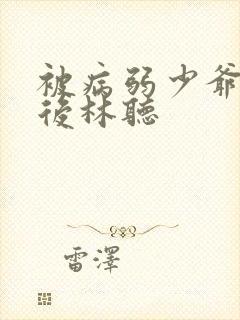 被病弱少爺
後林聽
雷澤